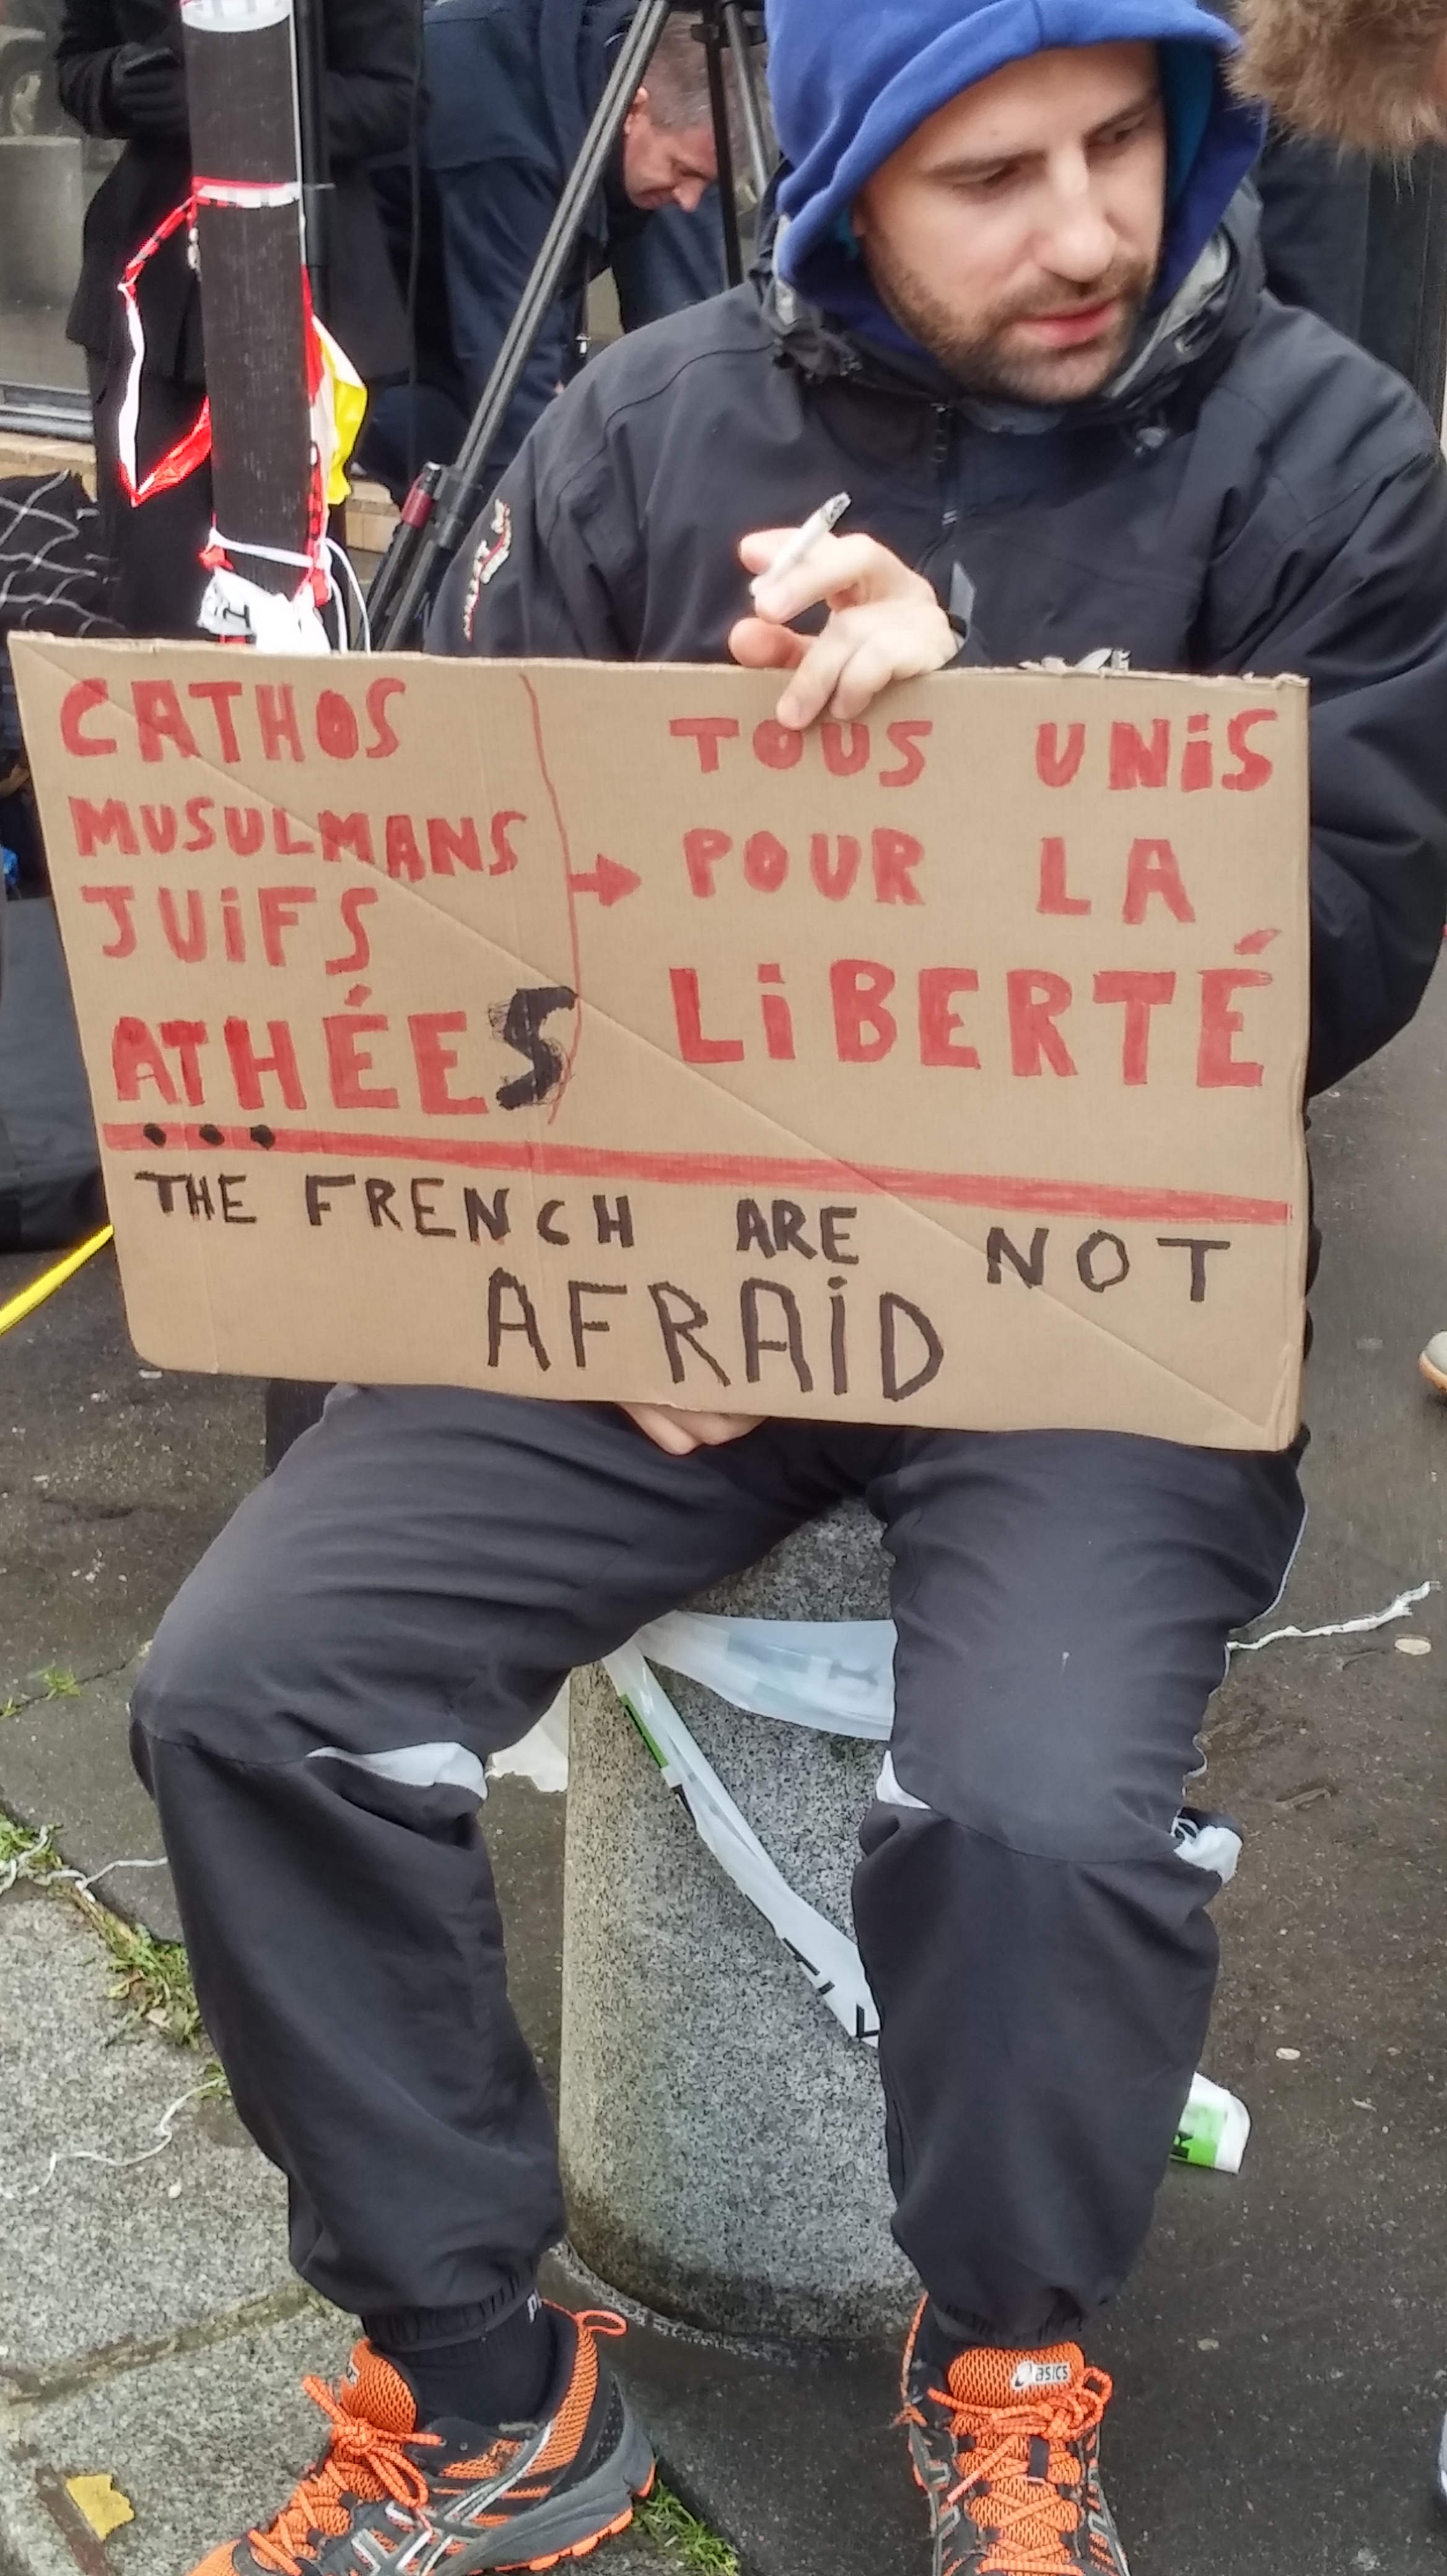 CATHOS
MUSULMANS
JUiFS
ATHÉES
...
TOUS UNiS
POUR LA
LiBERTÉ
THE FRENCH ARE NOT
AFRAiD
asics